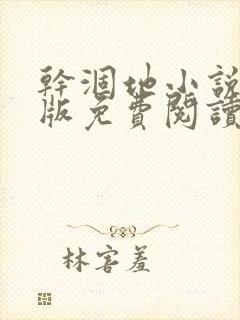 幹涸地小說
版免費閱讀
林害羞